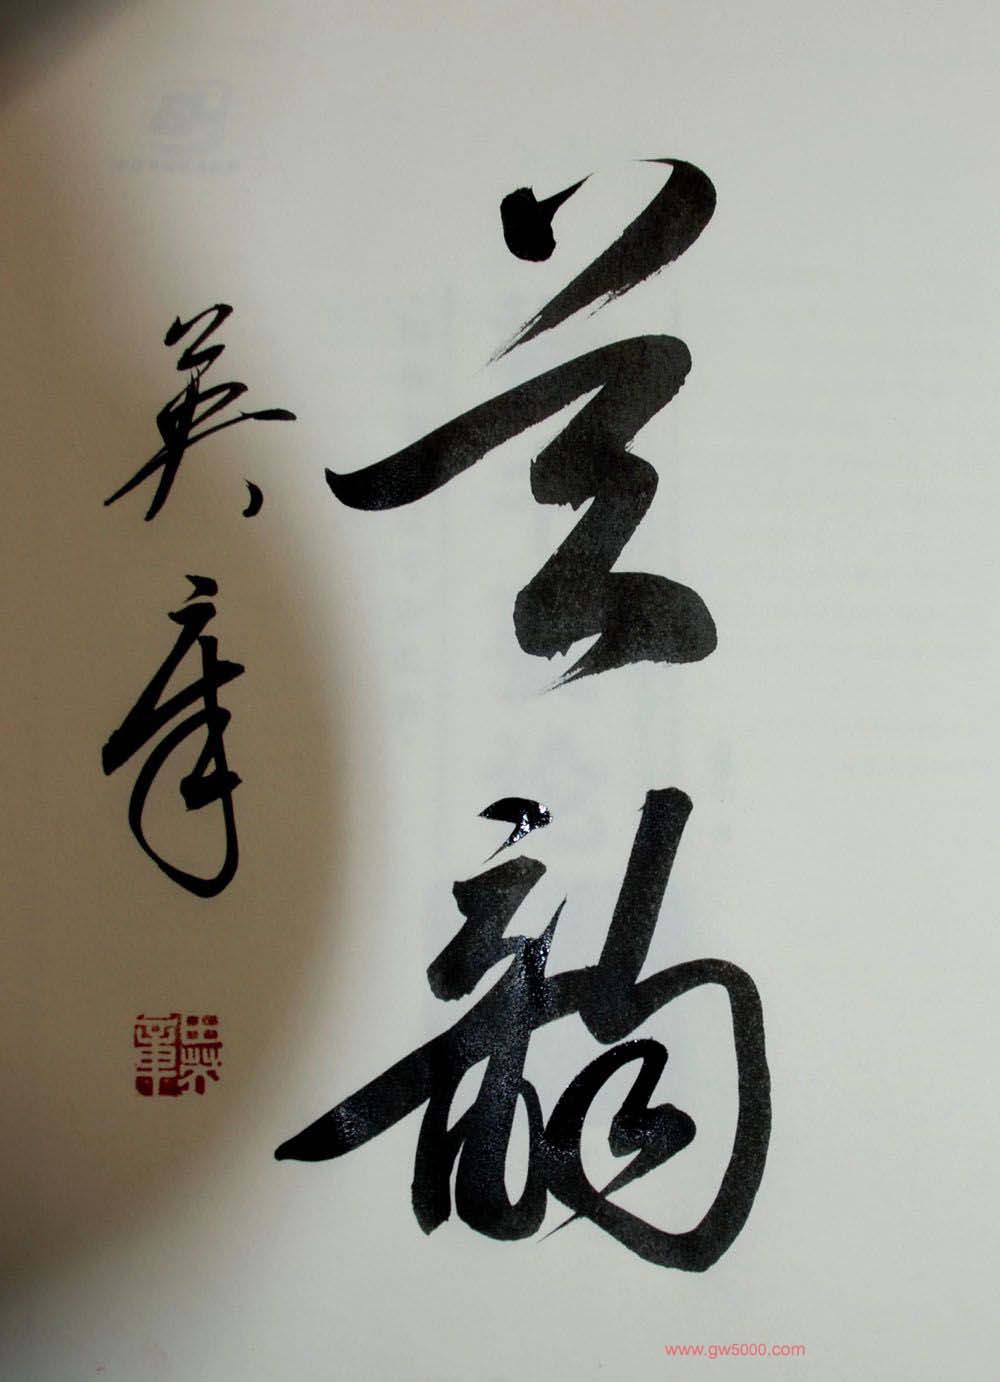 兰韵
英章
www.gw5000.com